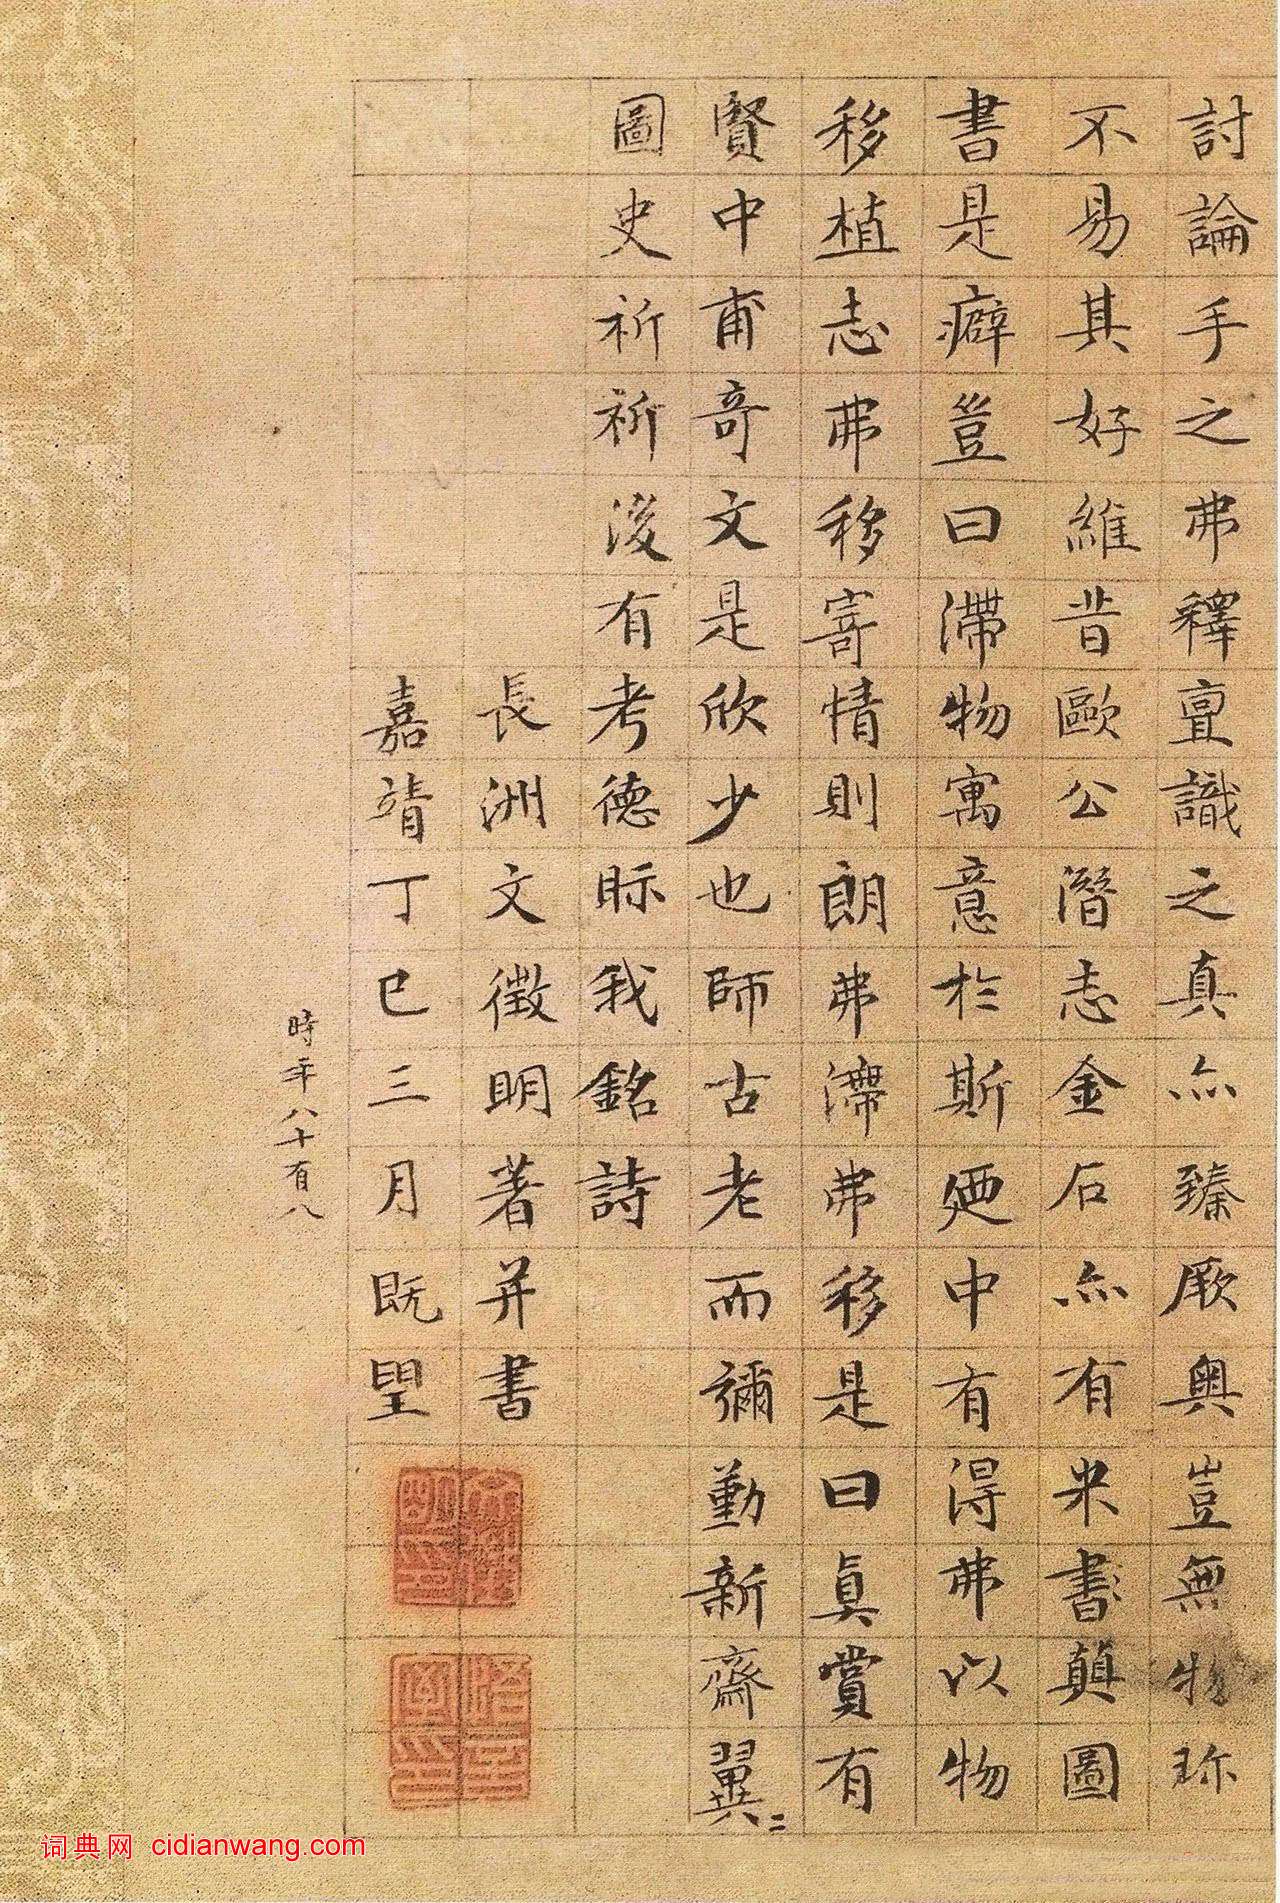 討論手之弗釋亶識之真亦臻厥奧豈無物珎
不易其好維昔歐公潛志金石亦有米書顛圖
書是癖豈曰滯物寓意於斯廼中有得弗以物
移植志弗移寄情則朗弗滯弗移是曰真賞有
賢中甫奇文是欣少也師古老而彌勤新齋翼〻
圖史祈祈後有考德眎我銘詩
長洲文徵明著并書
嘉靖丁巳三月既望
時年八十有八
词典网 cidianwang.com